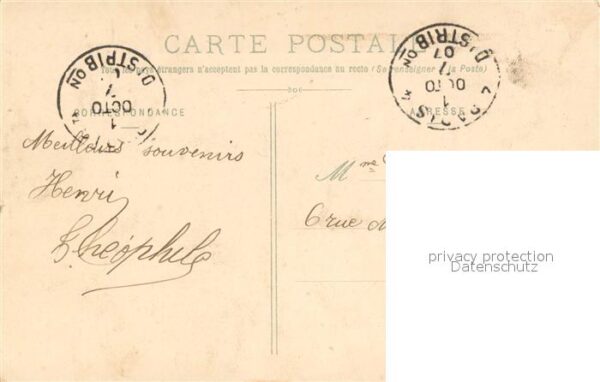 CARTE POSTALE
Tous les pays étrangers n'acceptent pas la correspondance au recto (Se renseigner à la Poste)
CORRESPONDANCE
ADRESSE
D'STRIBON
1
OCTO
D'STRIBON
07
OCTO
1
PARIS
Meilleurs souvenirs
Henri
Théophile
Mme
6 rue
privacy protection
Datenschutz